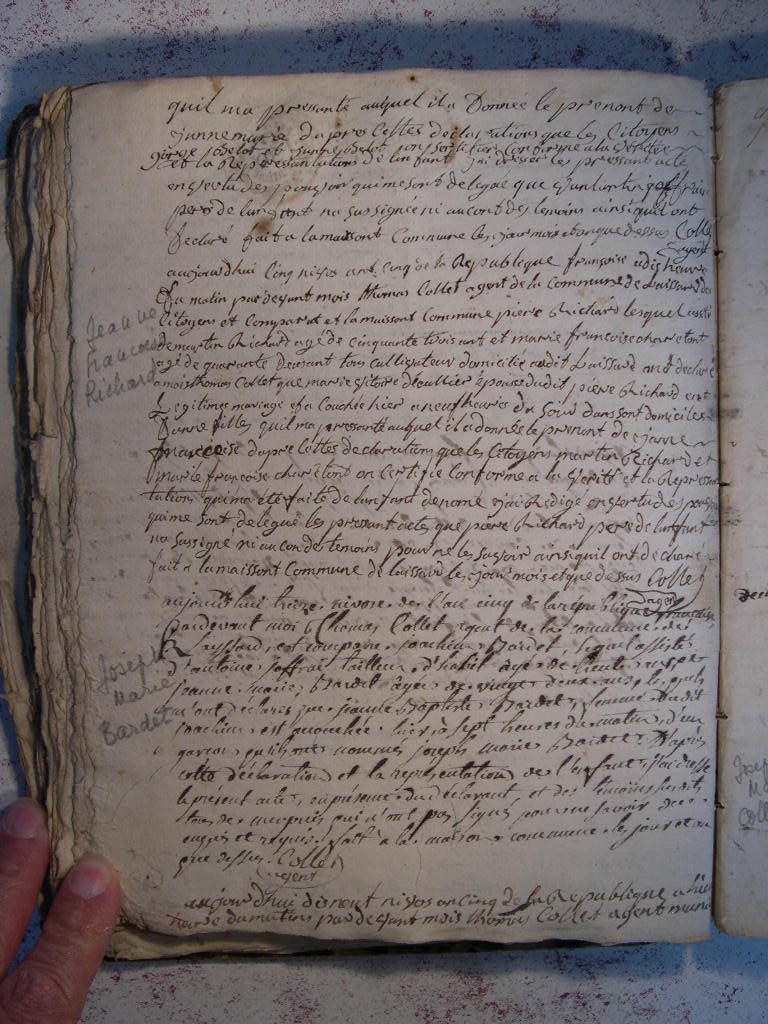 quil ma pressanté auquel il a Donnée le prenont de
jannemarie dapres Cettes declarations que les Citoyens
et la Representations de lenfant jai dresser les pressant acte
en vertu des pouvoir qui me sont delegué que
pere de lanfant na sus signée ni aucont des temoins ainsi quil ont
Declaré fait a la maissont Commune les jour mois et anque dessus Collet
agent
aujourdhui Cinq nivos ant Cinq de la Republique françoise a dis heure
du matin pardevant mois thomas Collet agent de la commune de Laissard
Citoyens et Comparat et la maissont commune piere Richard lesquel
de martin Richard agé de cinquante trois ant et marie francoise charetont
agé de quarante Deux ant tous cultivateur domicilié audit Laissard ont declaré
a mois thomas Collet que marie épouse dudit piere Richard ent
Legitimes mariage et a Couchée hier a neuf heures du Soir dans sont domiciles
Dunne fille quil ma pressante auquel il a donnée le prenont de janne
francoise dapre Cettes declarations que les Citoyens martin Richard et
marie francoise charetont on Certifié Conforme a la verité et la Represen
tations qui ma eté faite de lanfant denomé jai Redigé en vertu des pouvoir
qui me sont delegué les pressant actes que piere Richard pere de lanfant
na sus signe ni aucon des temoins pour ne les savoir ainsi quil ont declaré
fait a la maissont Commune de laissard les jour mois et que dessus Collet
agent
aujourdhui treize nivose de l'an cinq de la république française
Pardevant moi Thomas Collet agent de la commune de
Layssard, est comparu joachim Bardet, lequel assisté
d'antoine joffrai tailleur d'habit agé de trente ans et
jeanne marie Bardet agée de vingt deux ans, lesquels
m'ont déclarés que Baptiste Bardet, femme dudit
joachim est accouchée hier à sept heures du matin, d'un
garcon qu'ils ont nommés joseph marie Bardet. D'après
cette déclaration et la représentation de l'enfant, j'ai dressé
le présent acte, en présence du déclarant, et des témoins susdits,
qui n'ont pas signés pour ne savoir de ce
enquis et requis. fait à la maison commune le jour et an
que dessus. Collet
agent
aujourdhui disneut nivos an Cinq de la Republique a
heure du matins pardevant mois thomas Collet agent muni
Jeanne
Francoise
Richard
Joseph
Marie
Bardet
Joseph
Ma
Coll